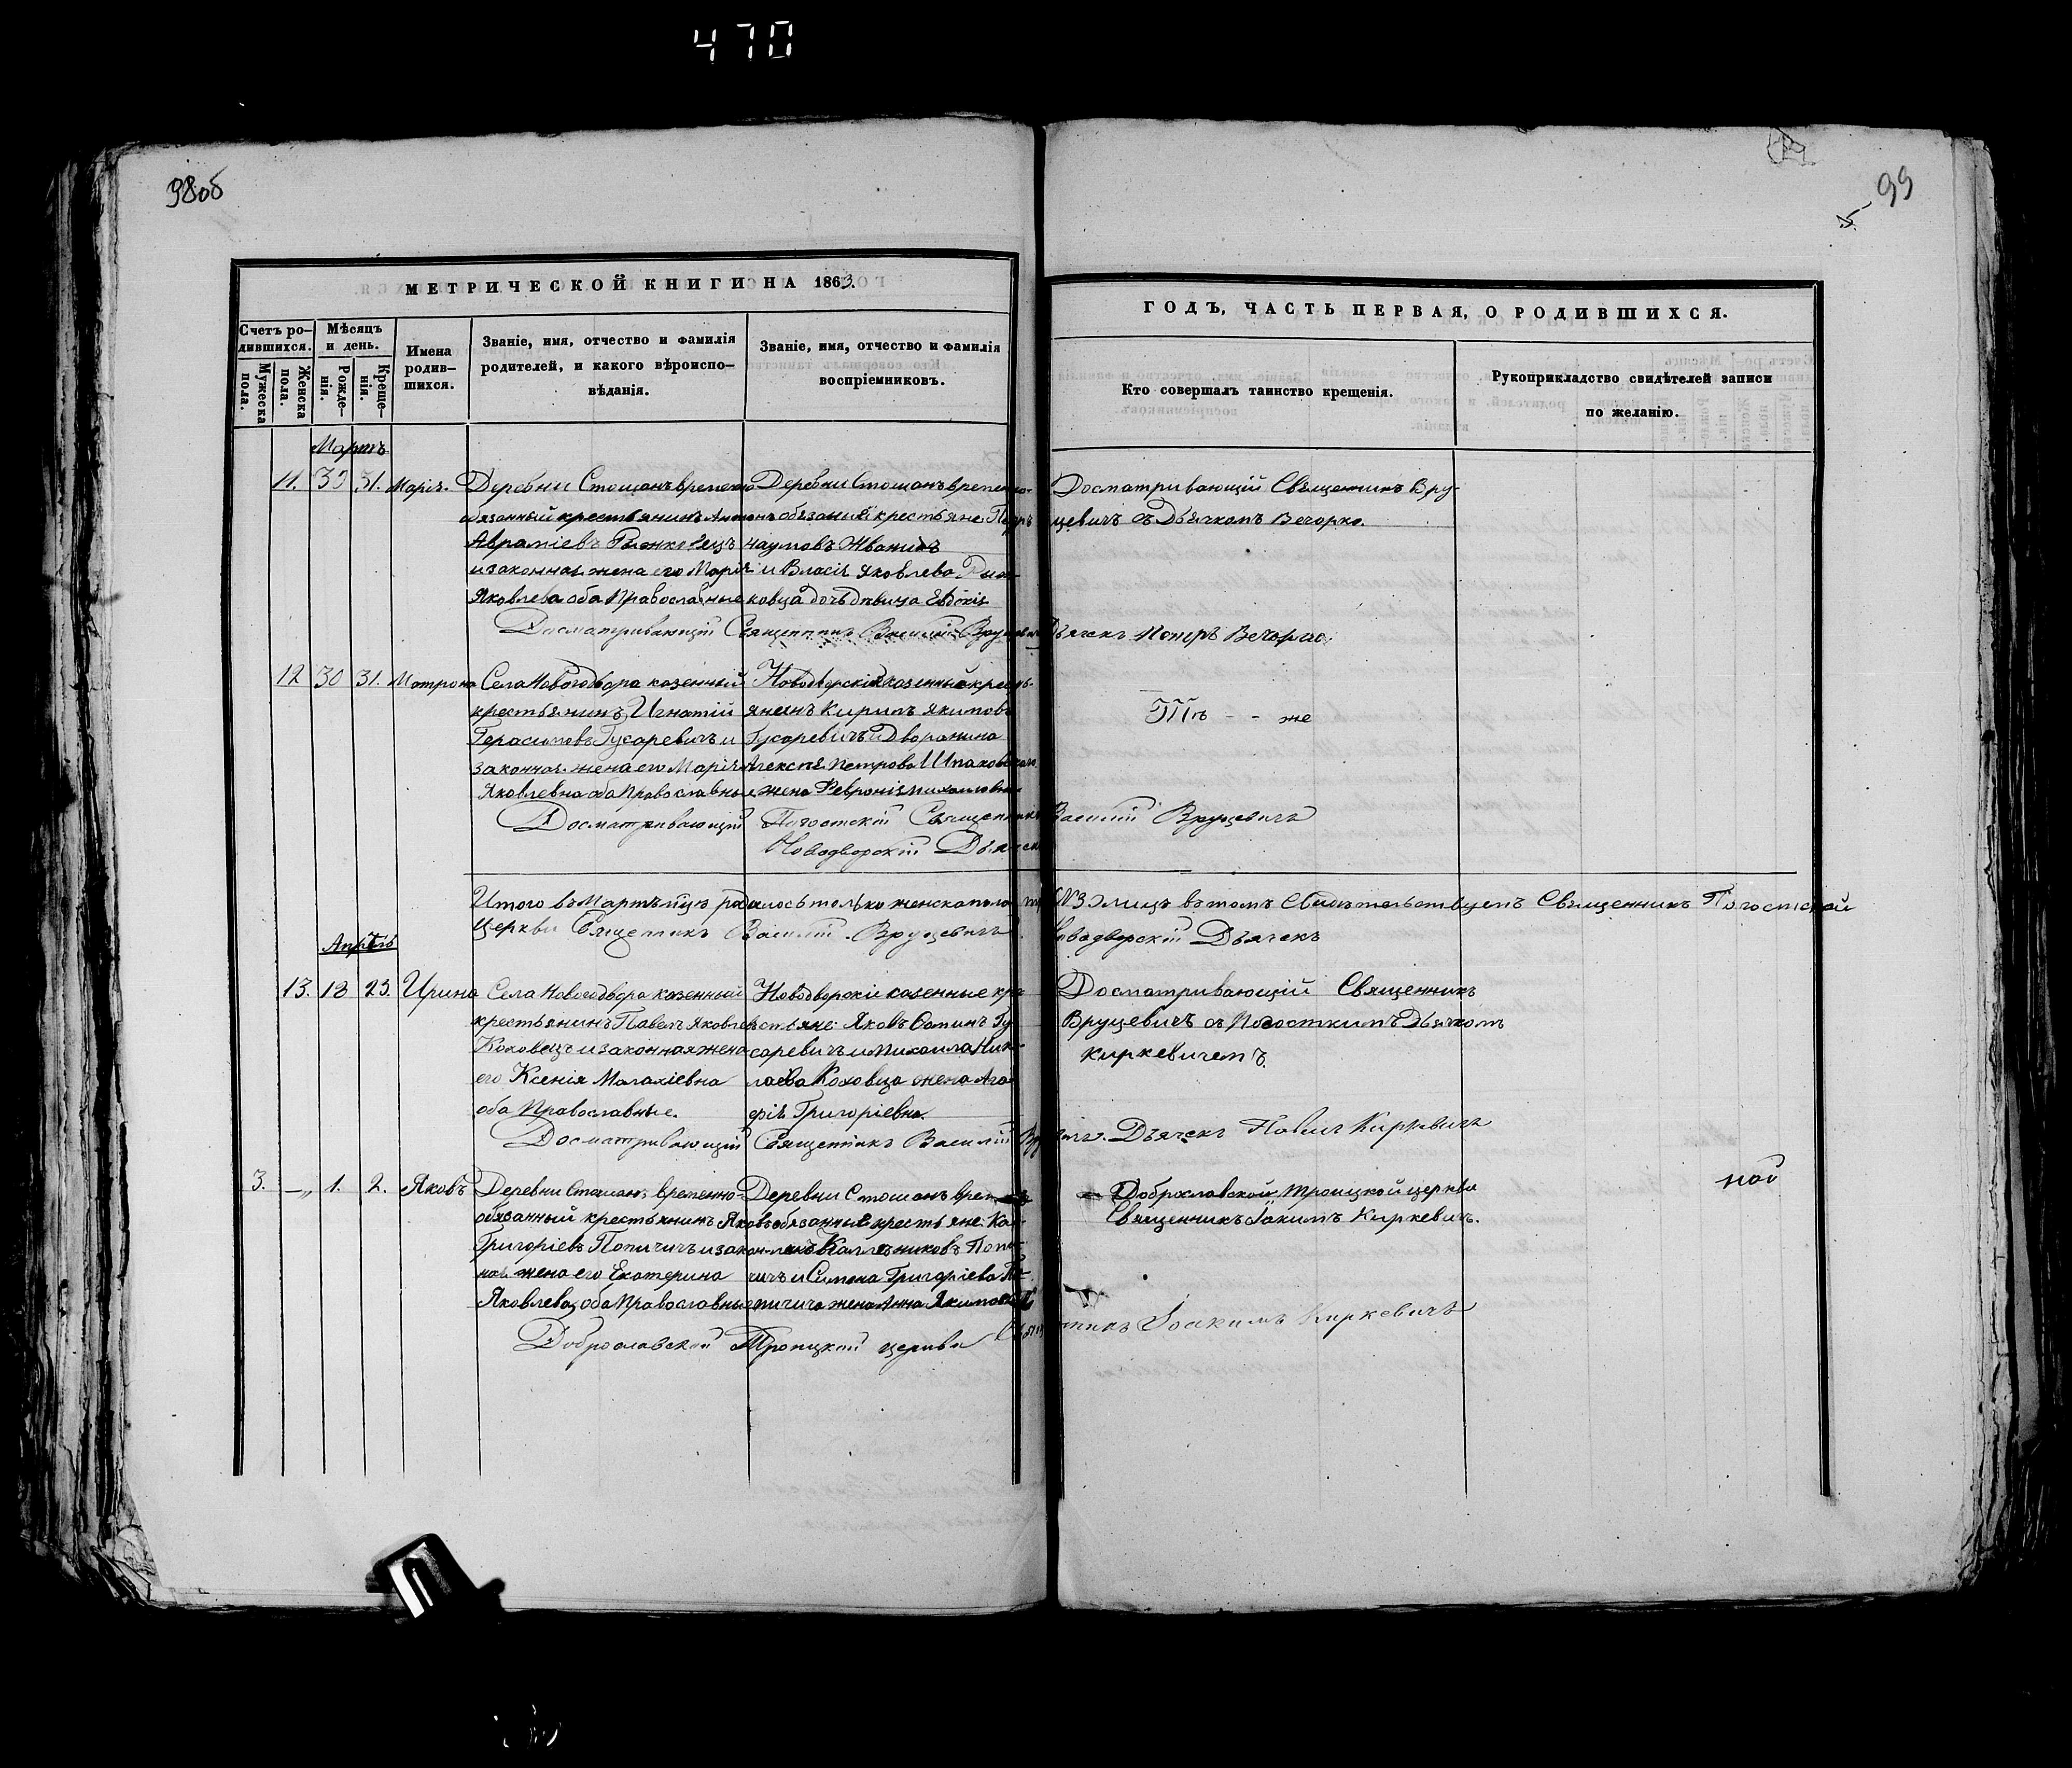 470
98об
99
МЕТРИЧЕСКОЙ КНИГИ НА 1863.
ГОДЪ, ЧАСТЬ ПЕРВАЯ, О РОДИВШИХСЯ.
Счетъ ро-
дившихся.
Мужеска
пола.
Женска
пола.
Мѣсяцъ
и день.
Рожде-
нія.
Креще-
нія.
Имена
родив-
шихся.
Званіе, имя, отчество и фамилія
родителей, и какого вѣроиспо-
вѣданія.
Званіе, имя, отчество и фамилія
воспріемниковъ.
Кто совершалъ таинство крещенія.
Рукоприкладство свидѣтелей записи
по желанію.
Мартъ
11. 30 31. Марія.
Деревни Стошанъ временно
обязанный крестьянинъ Антонъ
Авраміевъ
и законная жена его Марія
Яковлева оба Православные
Деревни Стошанъ временно-
обязаныя крестьяне
Наумовъ
и Власія Яковлева
ковца дочь дѣвица Евдокія
Досматривающій Священникъ Вру-
цевичъ съ Дьячкомъ Вечорко.
Досматривающій Священникъ Василій Дьячекъ Петръ Вечорко
12 30 31. Матрона
Села Новогодвора казенный
крестьянинъ Игнатій
Герасимовъ Гусаревичъ и
законная жена его Марія
Яковлевна оба Православные
Новодворскій казенный кресть-
янинъ Кирилъ Якимовъ
Гусаревичъ и Дворянина
Алексѣя Петрова Шпаковскаго
жена Февронія Михаиловна
Тѣ - - же
Досматривающій Погостскій Священникъ Василій Вруцевичъ
Новодворскій Дьячекъ
Итого въ Мартѣ м̃цѣ родилось только женска пола №3 лицъ въ томъ Свидѣтельствуемъ Священникъ Погостской
Церкви Священникъ Василій Вруцевичъ Новодворскій Дьячекъ
Апрѣль
13. 18 23. Ирина
Села Новогодвора казенный
крестьянинъ Павелъ Яковлевъ
Коховецъ и законная жена
его Ксенія Малахіевна
оба Православные.
Новодворскіе казенные кре-
стьяне: Яковъ Ѳоминъ Гу-
саревичъ и Михаила Нико-
лаева Коховца жена Ага-
фія Григоріевна.
Досматривающій Священникъ
Вруцевичъ съ Погосткимъ Дьячкомъ
Киркевичемъ.
Досматривающій Священникъ Василій Дьячекъ Павелъ Киркевичъ
3. —„ 1. 2. Яковъ
Деревни Стошанъ временно-
обязанный крестьянинъ Яковъ
Григоріевъ Попичичъ и закон-
ная жена его Екатерина
Яковлева, оба Православные
Деревни Стошанъ
обязанные крестьяне:
и Симона Григоріева По-
пичича жена Анна Якимова
Доброславской Троицкой церкви
Священникъ Іакимъ Киркевичъ.
ной
Доброславской Троицкой церкви Священникъ Іоакимъ Киркевичъ